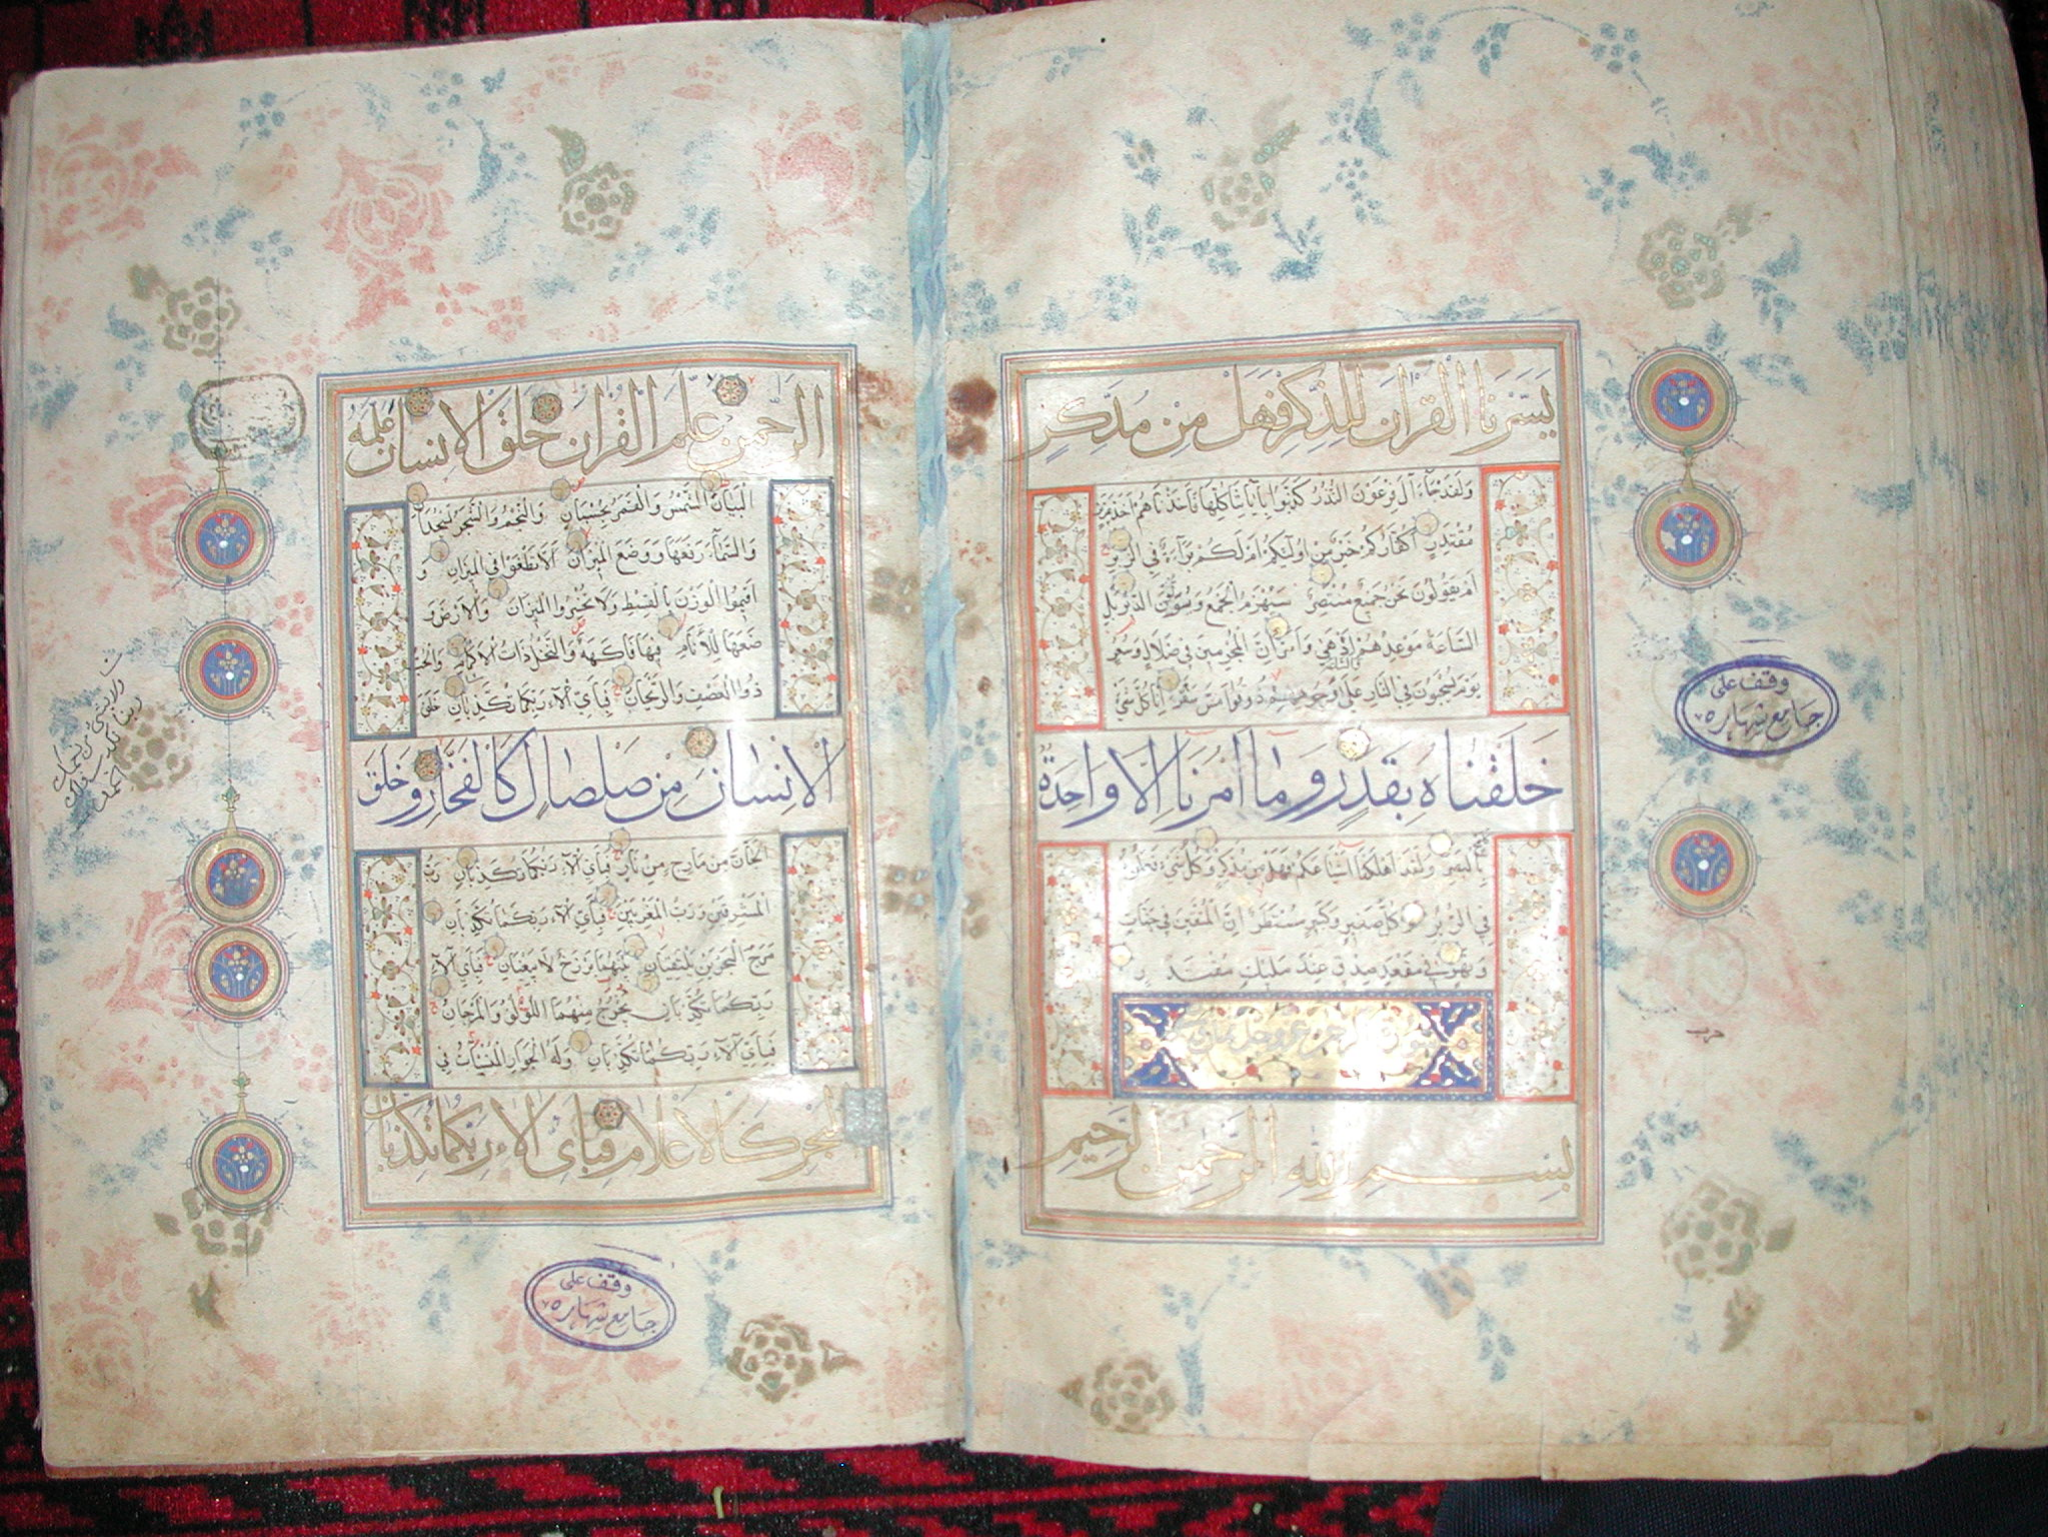 يسرنا القرآن للذكر فهل من مدكر
ولقد جاء آل فرعون النذر كذبوا بآياتنا كلها فأخذناهم أخذ عزيز
مقتدر أكفاركم خير من أولئكم أم لكم براءة في الزبر
أم يقولون نحن جميع منتصر سيهزم الجمع ويولون الدبر بل
الساعة موعدهم والساعة أدهى وأمر إن المجرمين في ضلال وسعر
يوم يسحبون في النار على وجوههم ذوقوا مس سقر إنا كل شيء
خلقناه بقدر وما أمرنا إلا واحدة
بالبصر ولقد أهلكنا أشياعكم فهل من مدكر وكل شيء فعلوه
في الزبر وكل صغير وكبير مستطر إن المتقين في جنات
ونهر في مقعد صدق عند مليك مقتدر
سورة الرحمن
بسم الله الرحمن الرحيم
وقف على
جامع شهاره
الرحمن علم القرآن خلق الإنسان علمه
البيان الشمس والقمر بحسبان والنجم والشجر يسجدان
والسماء رفعها ووضع الميزان ألا تطغوا في الميزان و
أقيموا الوزن بالقسط ولا تخسروا الميزان والأرض و
ضعها للأنام فيها فاكهة والنخل ذات الأكمام والحب
ذو العصف والريحان فبأي آلاء ربكما تكذبان خلق
الإنسان من صلصال كالفخار وخلق
الجان من مارج من نار فبأي آلاء ربكما تكذبان رب
المشرقين ورب المغربين فبأي آلاء ربكما تكذبان
مرج البحرين يلتقيان بينهما برزخ لا يبغيان فبأي آلاء
ربكما تكذبان يخرج منهما اللؤلؤ والمرجان
فبأي آلاء ربكما تكذبان وله الجوار المنشآت في
البحر كالأعلام فبأي آلاء ربكما تكذبان
وقف على
جامع شهاره